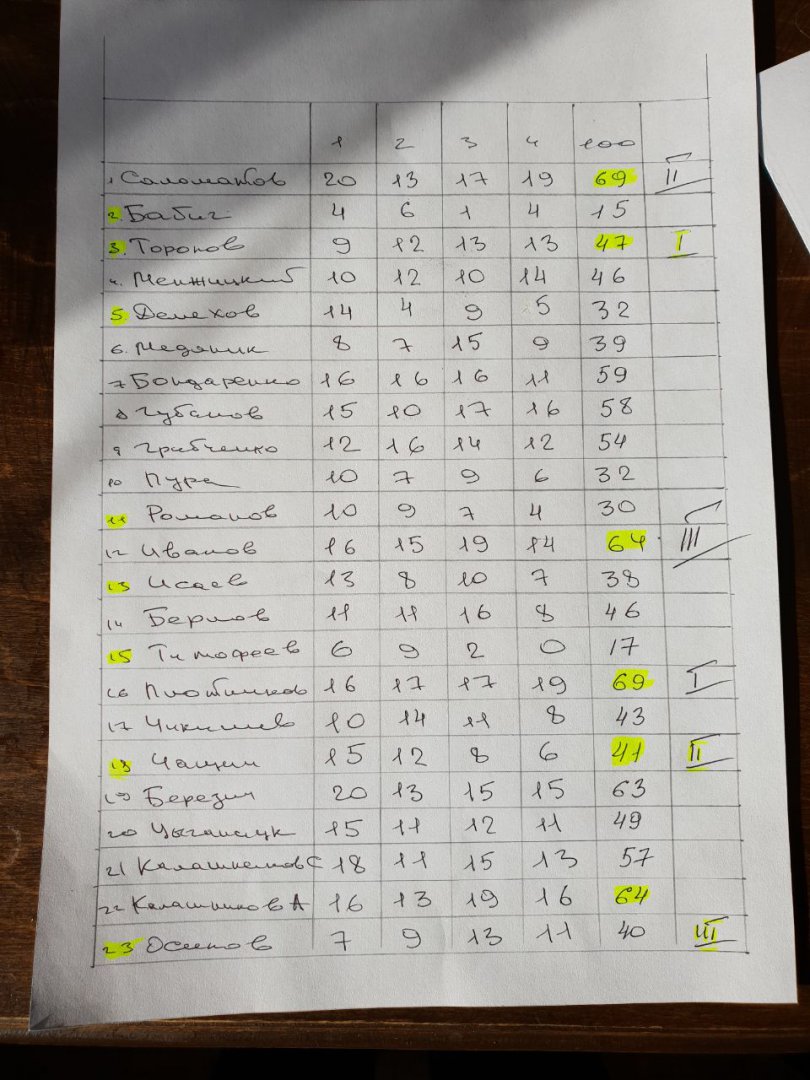 1 2 3 4 100
1 Саломатов 20 13 17 19 69 II
2. Бабиг 4 6 1 4 15
3. Торопов 9 12 13 13 47 I
4. Менжицкий 10 12 10 14 46
5 Делехов 14 4 9 5 32
6. Медяник 8 7 15 9 39
7 Бондаренко 16 16 16 11 59
8 Губанов 15 10 17 16 58
9 Грабченко 12 16 14 12 54
10 Пура 10 7 9 6 32
11 Романов 10 9 7 4 30
12 Иванов 16 15 19 14 64 III
13 Исаев 13 8 10 7 38
14 Берлов 11 11 16 8 46
15 Тимофеев 6 9 2 0 17
16 Плотников 16 17 17 19 69 I
17 Чикишев 10 14 11 8 43
18 Чащин 15 12 8 6 41 II
19 Березин 20 13 15 15 63
20 Цыганчук 15 11 12 11 49
21 Калашников С 18 11 15 13 57
22 Калашников А 16 13 19 16 64
23 Осипов 7 9 13 11 40 III